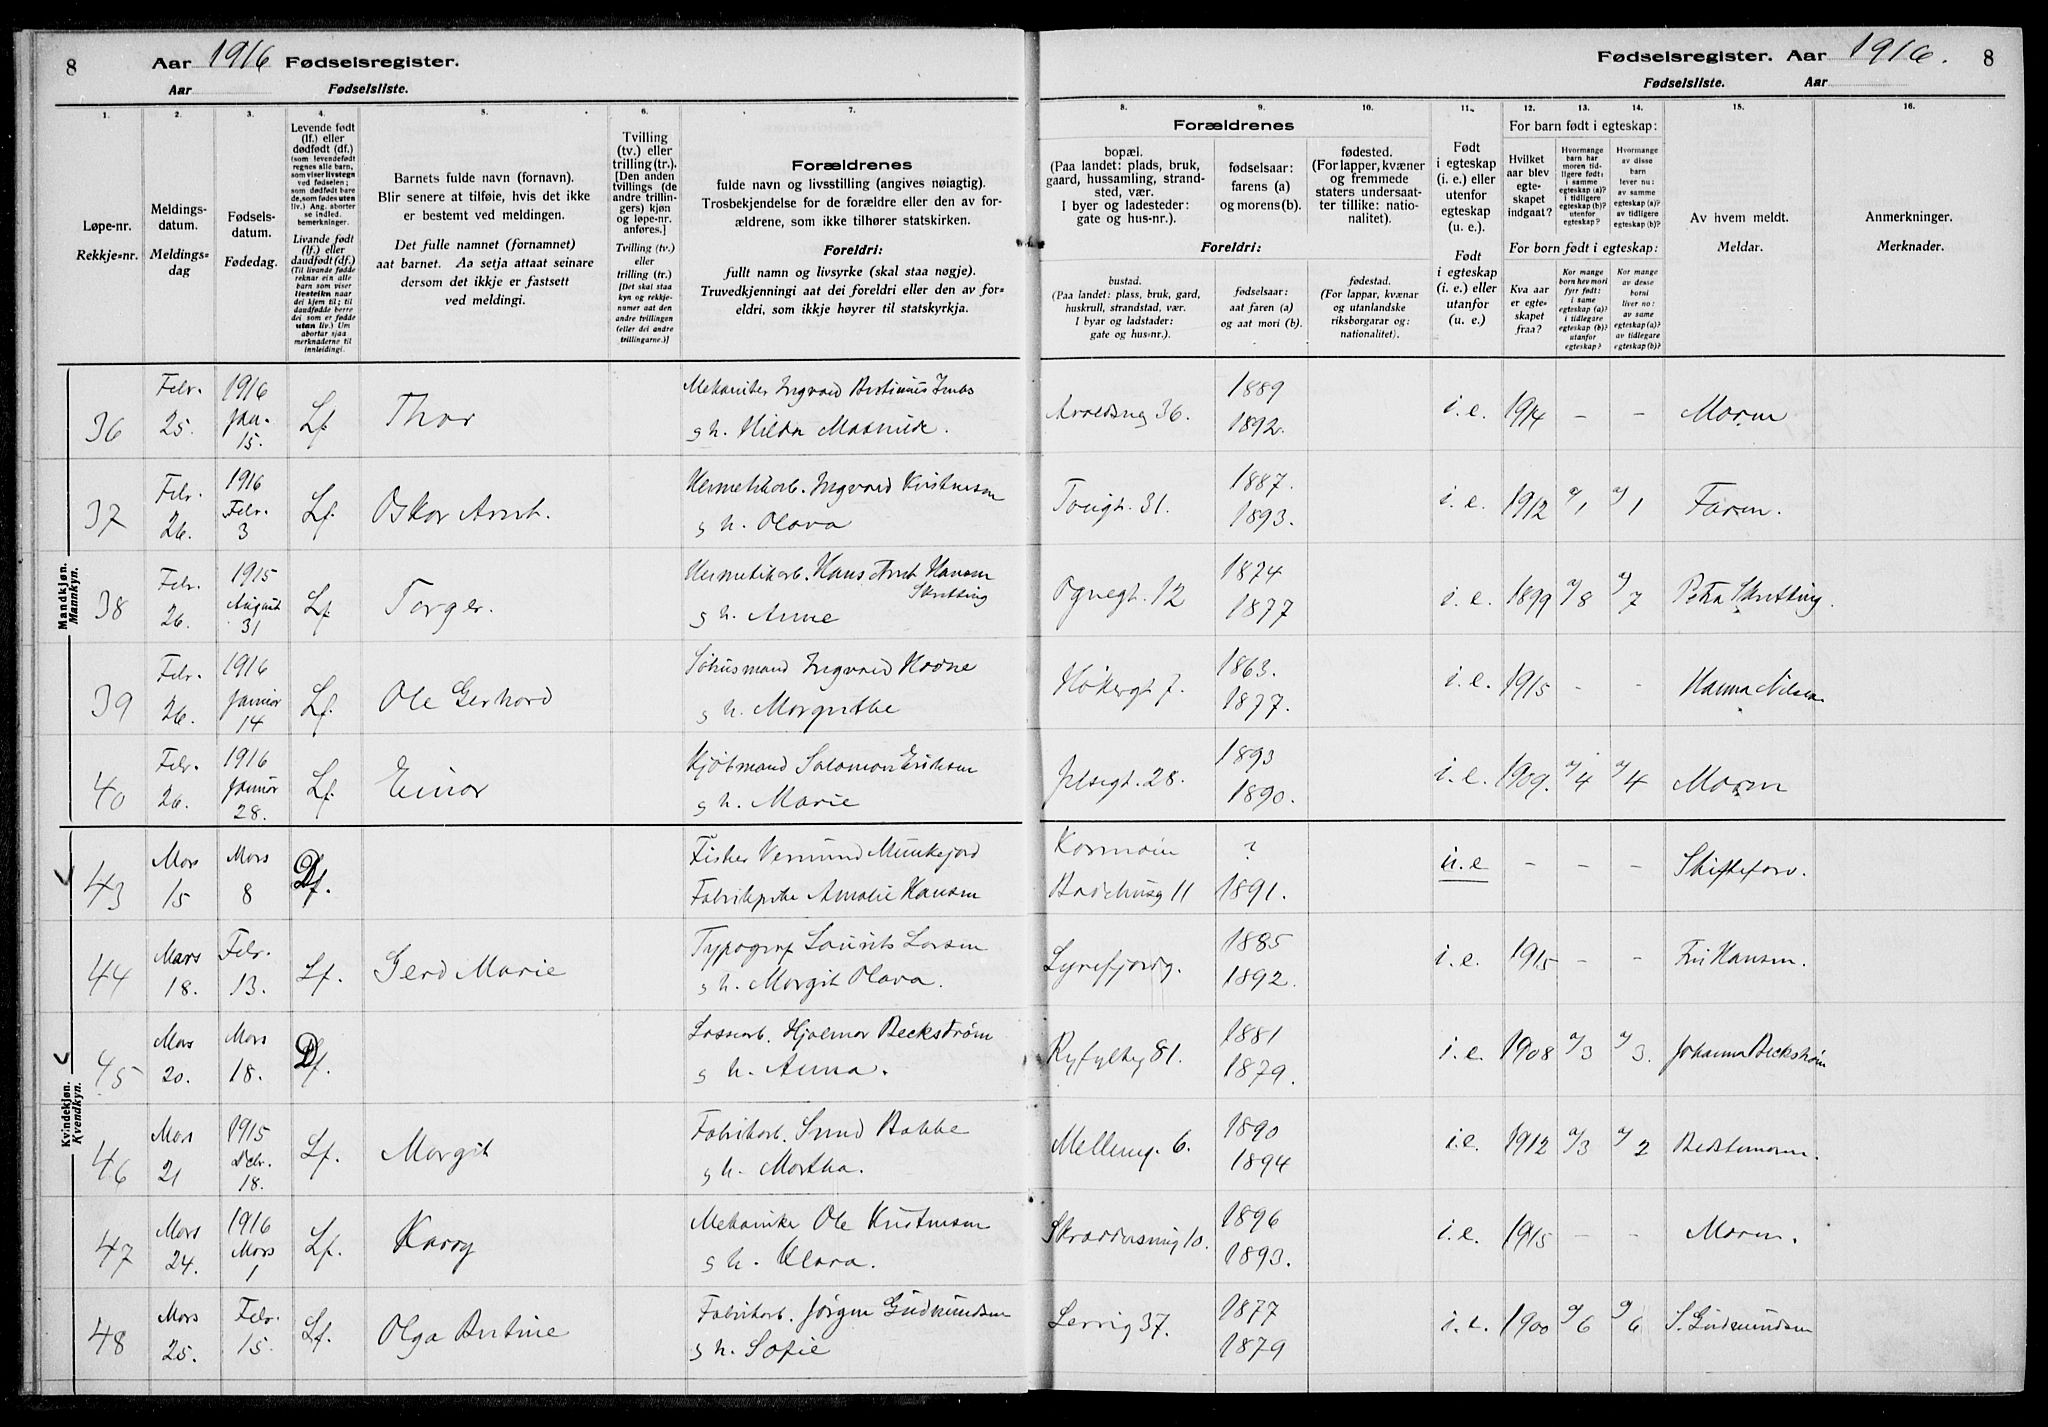 8 Aar 1916 Fødselsregister.
Aar Fødselsliste.
Fødselsregister. Aar 1916. 8
Fødselsliste. Aar
1. 2. 3. 4. 5. 6. 7. 8. 9. 10. 11. 12. 13. 14. 15. 16.
Løpe-nr.
Rekkje-nr.
Meldings-
datum.
Meldings-
dag
Fødsels-
datum.
Fødedag.
Levende født
(lf.) eller
dødfødt (df.)
(som levendefødt
regnes alle barn,
som viser livstegn
ved fødselen;
som dødfødt bare
de, som fødes uten
liv.) Ang. aborter
se indled.
bemerkninger.
Livande født
(lf.) eller
daudfødt (df.)
(Til livande fødde
reknar ein alle
barn som viser
livsteikn naar
dei kjem til; til
daudfødde berre
dei som er fødde
utan liv.) Um
abortar sjaa
merknaderne til
innleidingi.
Barnets fulde navn (fornavn).
Blir senere at tilføie, hvis det ikke
er bestemt ved meldingen.
Det fulle namnet (fornamnet)
aat barnet. Aa setja attaat seinare
dersom det ikkje er fastsett
ved meldingi.
Tvilling
(tv.) eller
trilling (tr.).
[Den anden
tvillings (de
andre trillin-
gers) kjøn
og løpe-nr.
anføres.]
Tvilling (tv.)
eller
trilling (tr.)
[Det skal staa
kyn og rekkje-
numer aat den
andre tvillingen
(eller dei andre
trillingarne.)]
Forældrenes
fulde navn og livsstilling (angives nøiagtig).
Trosbekjendelse for de forældre eller den av for-
ældrene, som ikke tilhører statskirken.
Foreldri:
fullt namn og livsyrke (skal staa nøgje).
Truvedkjenningi aat dei foreldri eller den av for-
eldri, som ikkje høyrer til statskyrkja.
Forældrenes
bopæl.
(Paa landet: plads, bruk,
gaard, hussamling, strand-
sted, vær.
I byer og ladesteder:
gate og hus-nr.).
fødselsaar:
farens (a)
og morens (b).
fødested.
(For lapper, kvæner
og fremmede
staters undersaat-
ter tillike: natio-
nalitet).
Foreldri:
bustad.
(Paa landet: plass, bruk, gard,
huskrull, strandstad, vær.
I byar og ladstader:
gate og hus-nr.).
fødselsaar:
aat faren (a)
og aat mori (b).
fødestad.
(For lappar, kvænar
og utanlandske
riksborgarar og:
nationalitet).
Født
i egteskap
(i. e.) eller
utenfor
egteskap
(u. e.).
Født
i egteskap
(i. e.) eller
utanfor
(u. e.).
For barn født i egteskap:
Hvilket
aar blev
egte-
skapet
indgaat?
Hvormange
barn har
moren tid-
ligere født:
i samme
egteskap (a)?
utenfor
egteskap (b)?
Hvormange
av disse
barn
lever nu:
av samme
egteskap (a)?
av tidligere
egteskap (b)?
For born født i egteskap:
Kva aar
er egte-
skapet
fraa?
Av hvem meldt.
Meldar.
Anmerkninger.
Merknader.
Mandkjøn.
Mannkyn.
36 Febr. 25. 1916 Jan. 15. Lf. Thor
g h. Hilda Mathilde. 36. 1889 1892. i. e. 1914 - - Moren
37 Febr. 26. 1916 Febr. 3 Lf. Oskar Arnt.
Hermetikarb. Ingvald Kristensen
g h. Olava 31. 1887. 1893. i. e. 1912 a/1 a/1 Faren.
38 Febr. 26. 1915 August 31 Lf. Torger.
Hermetikarb. Hans Arnt Hansen
Skretting
g h. Anne Ognegt. 12 1874 1877 i. e. 1899 a/8 a/7 Petra Skretting.
39 Febr. 26. 1916 Januar 14 Lf. Ole Gerhard
Ingvald
g h. Margrethe Høkergt 7. 1863. 1877. i. e. 1915 - - Hanna Nilsen
40 Febr. 26. 1916 Januar 28. Lf. Einar
Kjøbmand Salomon Eriksen
g h. Marie Jelsegt. 28. 1893 1890. i. e. 1909. a/4 a/4 Moren
Kvindekjøn.
Kvendkyn.
43 Mars 15 Mars 8 Df.
Fisker Vermund Munkejord Karmøin ?
Amalie Hansen 11 1891. u. e - - - Skifteforv.
44 Mars 18. Febr. 13. Lf. Gerd Marie
Typograf Laurits Larsen
g h. Margit Olava. Lyrefjordg. 1885 1892. i. e. 1915 - - Fru Hansen.
45 Mars 20. Mars 18. Df.
Lossearb. Hjalmar Beckstrøm
g h. Anna. Ryfylkeg 81. 1881 1879. i. e. 1908 a/3 a/3. Johanna Beckstrøm
46 Mars 21 1915 Decbr. 18. Lf. Margit
Fabrikarb. Svend Bakke
g h. Martha. 6. 1890 1894 i. e. 1912 a/3 a/2 Bedstemoren.
47 Mars 24. 1916 Mars 1 Lf. Karry
Mekaniker Ole Kristensen
g h. Klara. 10. 1896 1893. i. e. 1915 - - Moren.
48 Mars 25. Febr. 15. Lf. Olga Bertine
Fabrikarb. Jørgen Gudmundsen
g h. Sofie Lervig 37. 1877 1879 i. e. 1900 a/6 a/6 S. Gudmundsen